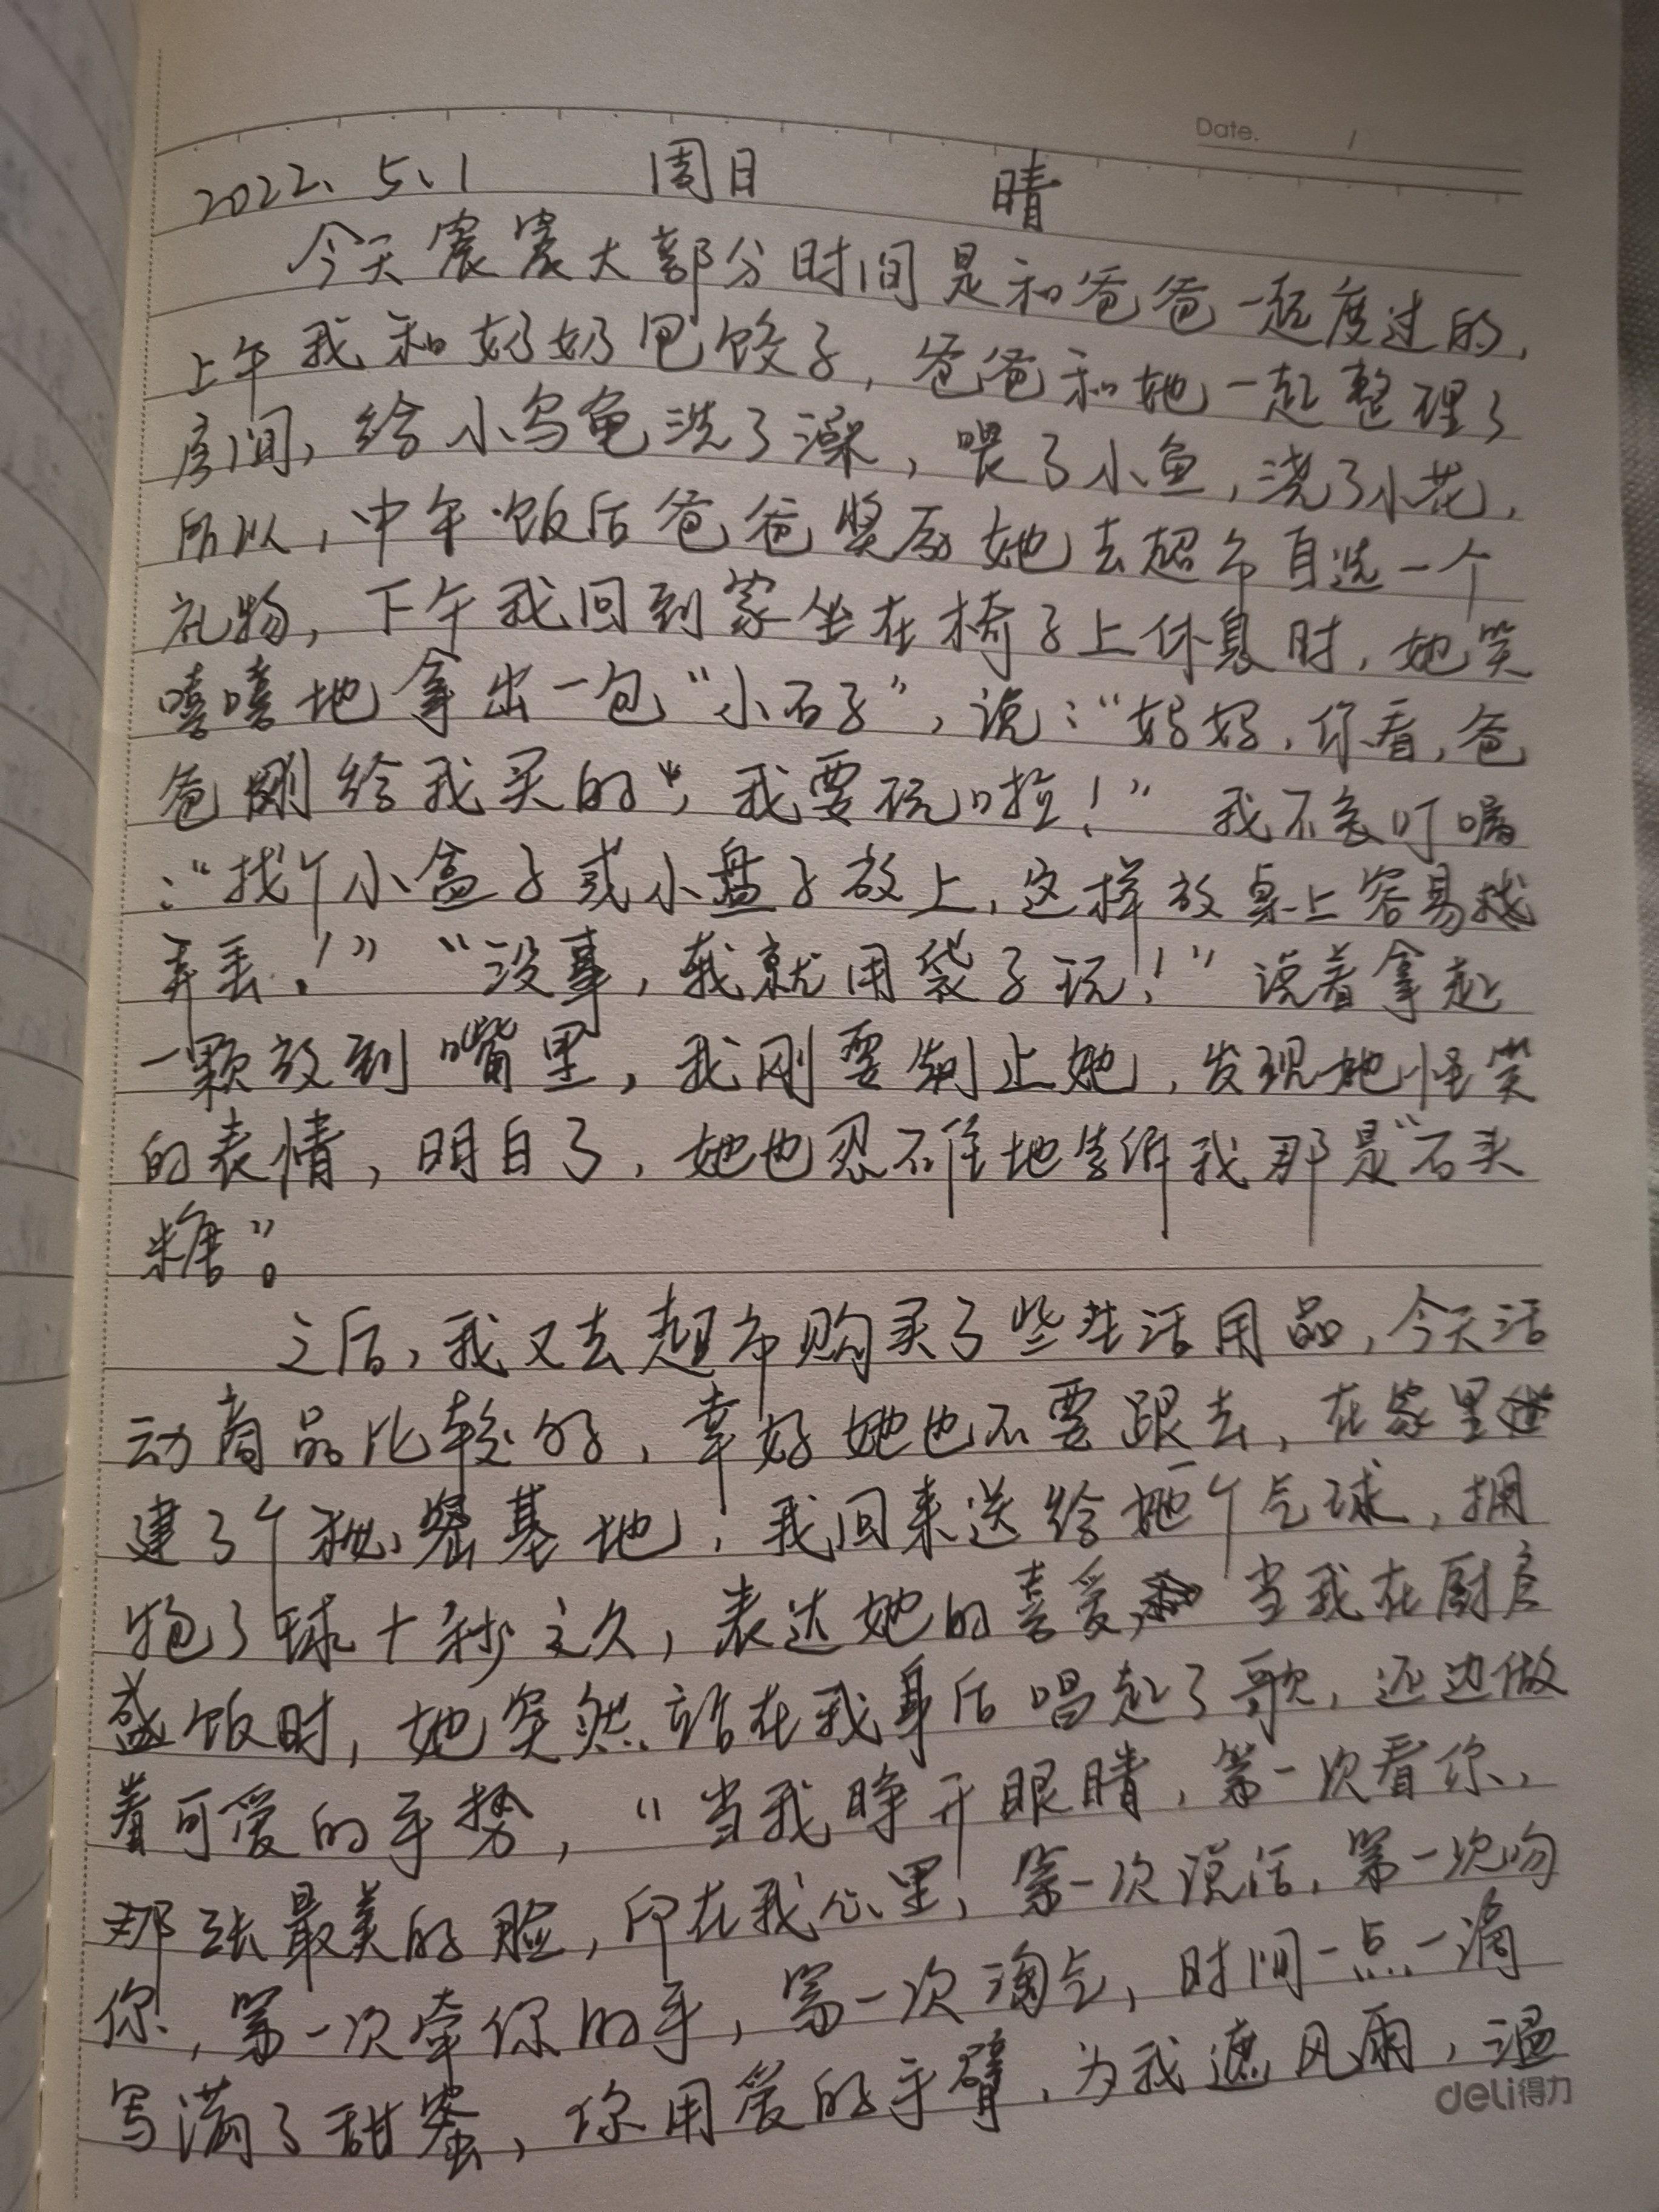 Date. /
2022、5、1 周日 晴
今天宸宸大部分时间是和爸爸一起度过的，
上午我和奶奶包饺子，爸爸和她一起整理了
房间，给小乌龟洗了澡，喂了小鱼，浇了小花，
所以，中午饭后爸爸奖励她去超市自选一个
礼物，下午我回到家坐在椅子上休息时，她笑
嘻嘻地拿出一包“小石子”，说：“妈妈，你看，爸
爸刚给我买的，我要玩啦！” 我不急叮嘱
：“找个小盒子或小盘子放上，这样放桌上容易
弄丢！” “没事，我就用袋子玩！” 说着拿起
一颗放到嘴里，我刚要制止她，发现她怪笑
的表情，明白了，她也忍不住地告诉我那是“石头
糖”。
之后，我又去超市购买了些生活用品，今天活
动商品比较多，幸好她也不要跟去，在家里
建了个秘密基地，我回来送给她一个气球，拥
抱了球十秒之久，表达她的喜爱，当我在厨房
盛饭时，她突然站在我身后唱起了歌，还边做
着可爱的手势，“当我睁开眼睛，第一次看你，
那张最美的脸，印在我心里，第一次说话，第一次吻
你，第一次牵你的手，第一次淘气，时间一点一滴
写满了甜蜜，你用爱的手臂，为我遮风雨，温
deli得力